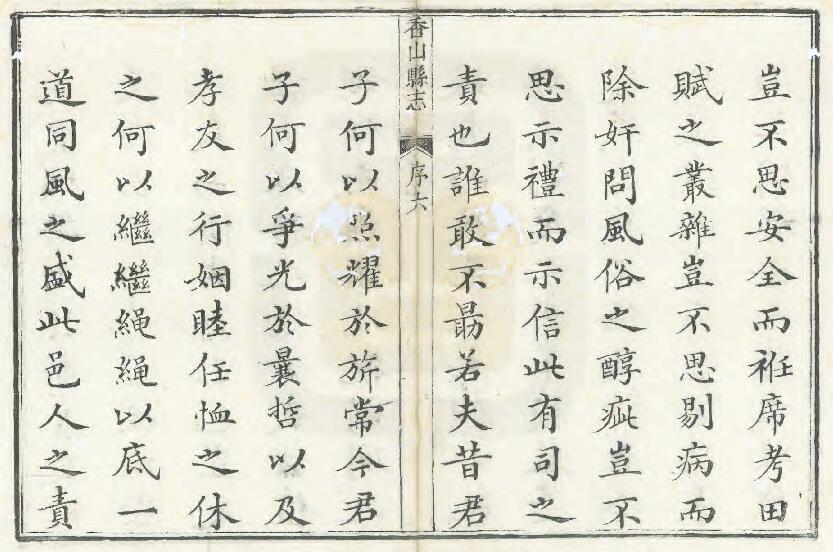 豈不思安全而袵席考田
賦之叢雜豈不思剔病而
除奸問風俗之醇疵豈不
思示禮而示信此有司之
責也誰敢不勗若夫昔君
香山縣志
序六
子何以照耀於旂常今君
子何以爭光於曩哲以及
孝友之行姻睦任恤之休
之何以繼繼繩繩以底一
道同風之盛此邑人之責